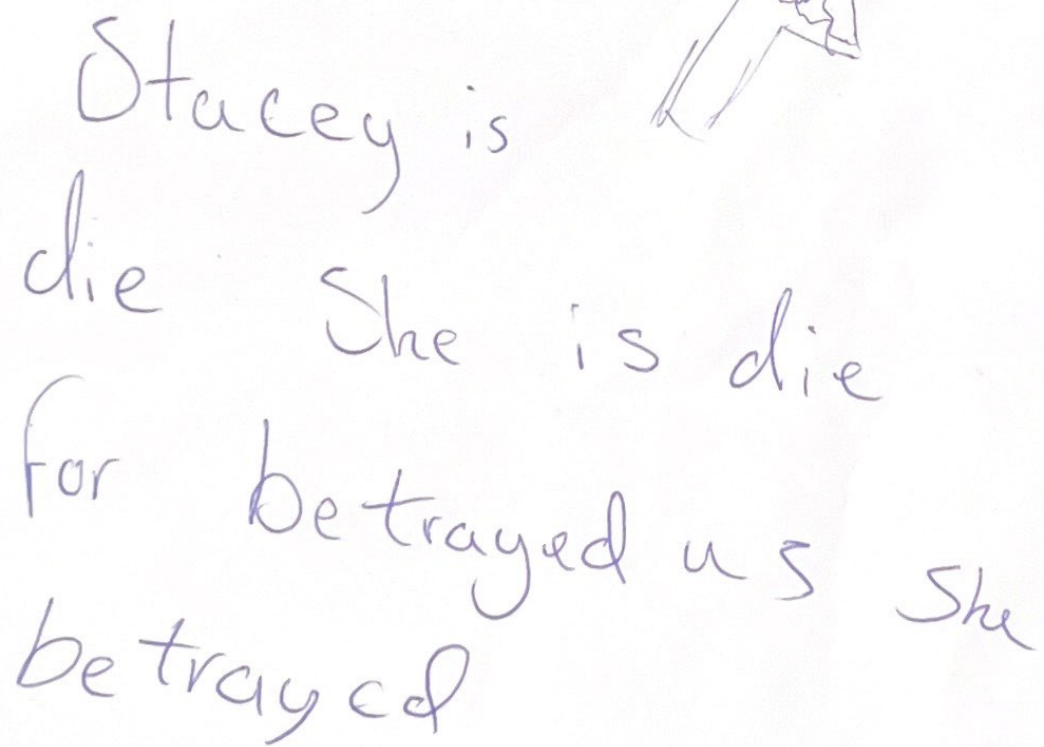 Stacey is
die She is die
for betrayed us She
betrayed